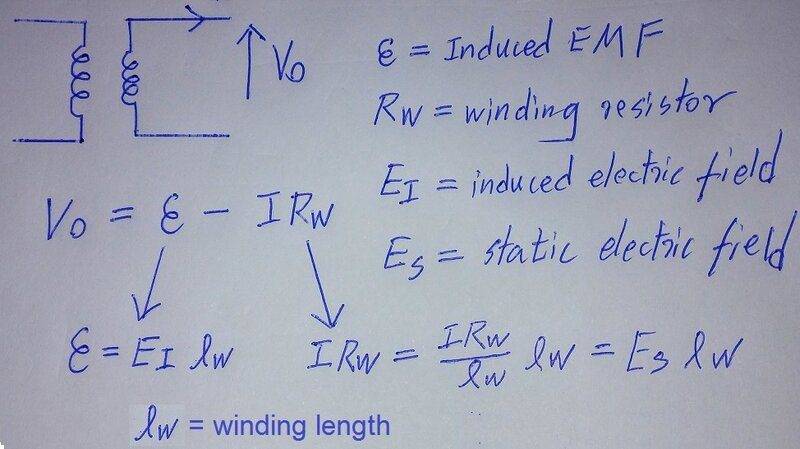 V₀
ε = Induced EMF
R_W = winding resistor
E_I = induced electric field
E_S = static electric field
V₀ = ε - I R_W
ε = E_I l_W
I R_W = I R_W / l_W l_W = E_S l_W
l_W = winding length